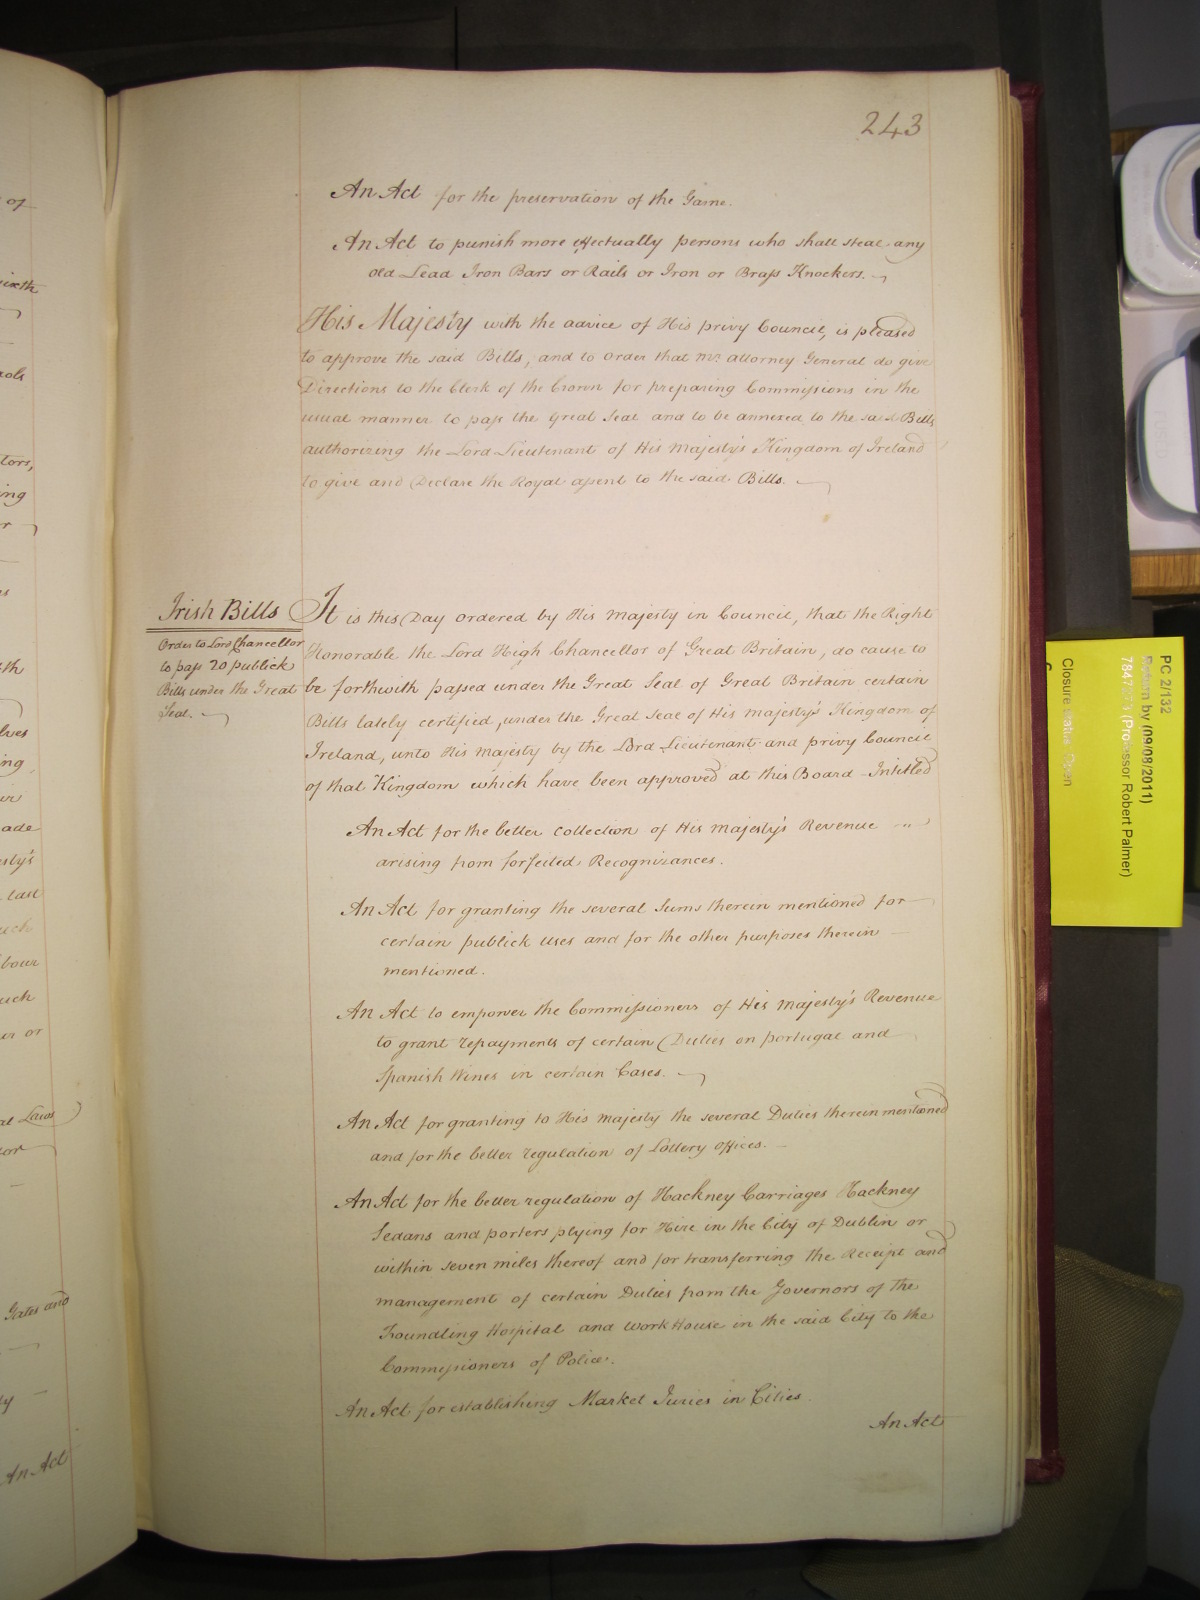 243
An Act for the preservation of the Game.
An Act to punish more effectually persons who shall steal any
old Lead Iron Bars or Rails or Iron or Brass Knockers.
His Majesty with the advice of His privy Council, is pleased
to approve the said Bills, and to order that Mr. attorney General do give
Directions to the Clerk of the Crown for preparing Commissions in the
usual manner to pass the Great Seal and to be annexed to the said Bills
authorizing the Lord Lieutenant of His Majesty's Kingdom of Ireland
to give and Declare the Royal assent to the said Bills.
Irish Bills
Order to Lord Chancellor
to pass 20 publick
Bills under the Great
Seal.
It is this Day ordered by His Majesty in Council, that the Right
Honorable the Lord High Chancellor of Great Britain, do cause to
be forthwith passed under the Great Seal of Great Britain certain
Bills lately certified, under the Great Seal of His Majesty's Kingdom of
Ireland, unto His Majesty by the Lord Lieutenant and privy Council
of that Kingdom which have been approved at this Board Intitled
An Act for the better collection of His Majesty's Revenue
arising from forfeited Recognizances.
An Act for granting the several Sums therein mentioned for
certain publick uses and for the other purposes therein
mentioned.
An Act to empower the Commissioners of His Majesty's Revenue
to grant repayments of certain Duties on portugal and
Spanish Wines in certain Cases.
An Act for granting to His Majesty the several Duties therein mentioned
and for the better regulation of Lottery offices.
An Act for the better regulation of Hackney Carriages Hackney
Sedans and porters plying for Hire in the City of Dublin or
within seven miles thereof and for transferring the Receipt and
management of certain Duties from the Governors of the
Foundling Hospital and Work House in the said City to the
Commissioners of Police.
An Act for establishing Market Juries in Cities
An Act
of
sixth
tors,
ing
or
th
lves
ing
ade
esty's
last
uch
bour
uch
er or
al Laws
for
Gates and
ly
An Act
PC 2/132
Return by (09/08/2011)
(Professor Robert Palmer)
Closure status: Open